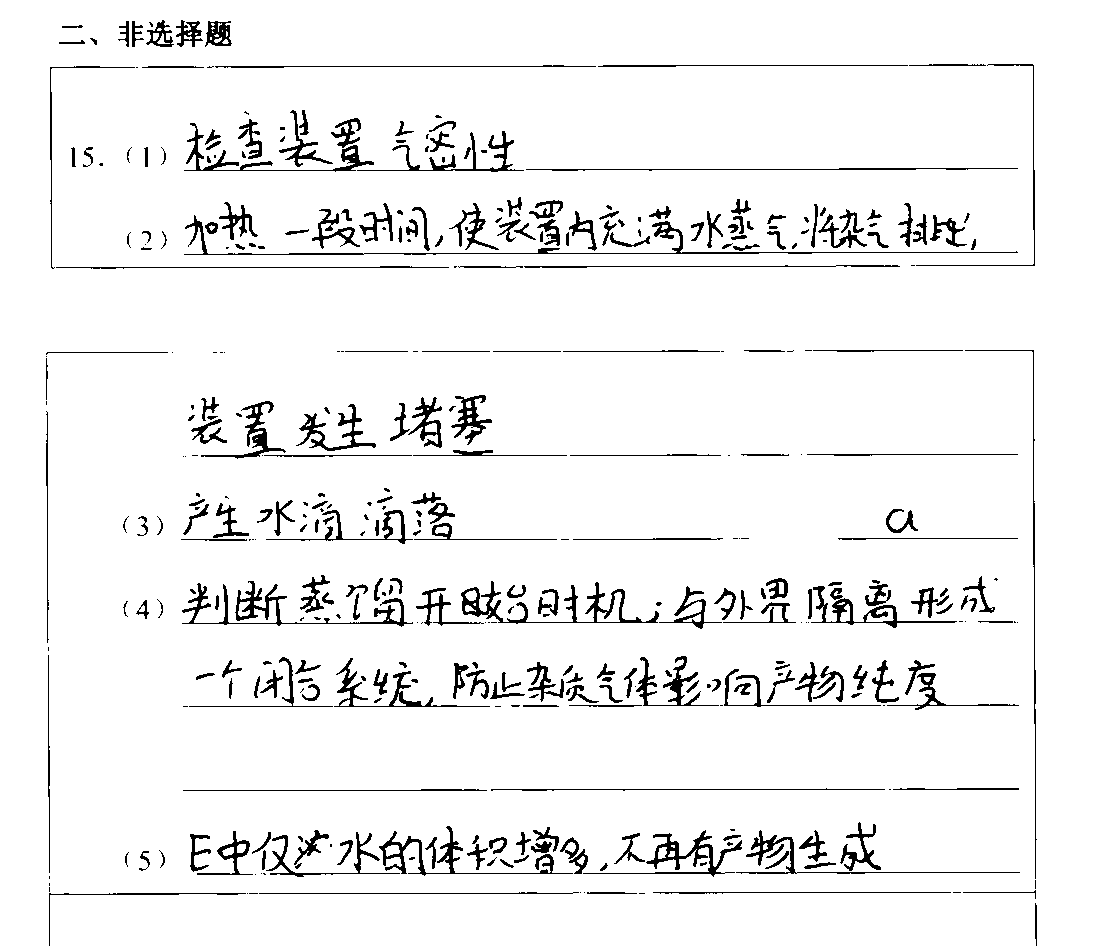 二、非选择题
15.（1）检查装置气密性
（2）加热一段时间,使装置内充满水蒸气,将杂气排出,
装置发生堵塞
（3）产生水滴滴落 a
（4）判断蒸馏开始时机;与外界隔离形成
一个闭合系统,防止杂质气体影响产物纯度
（5）E中仅 水的体积增多,不再有产物生成